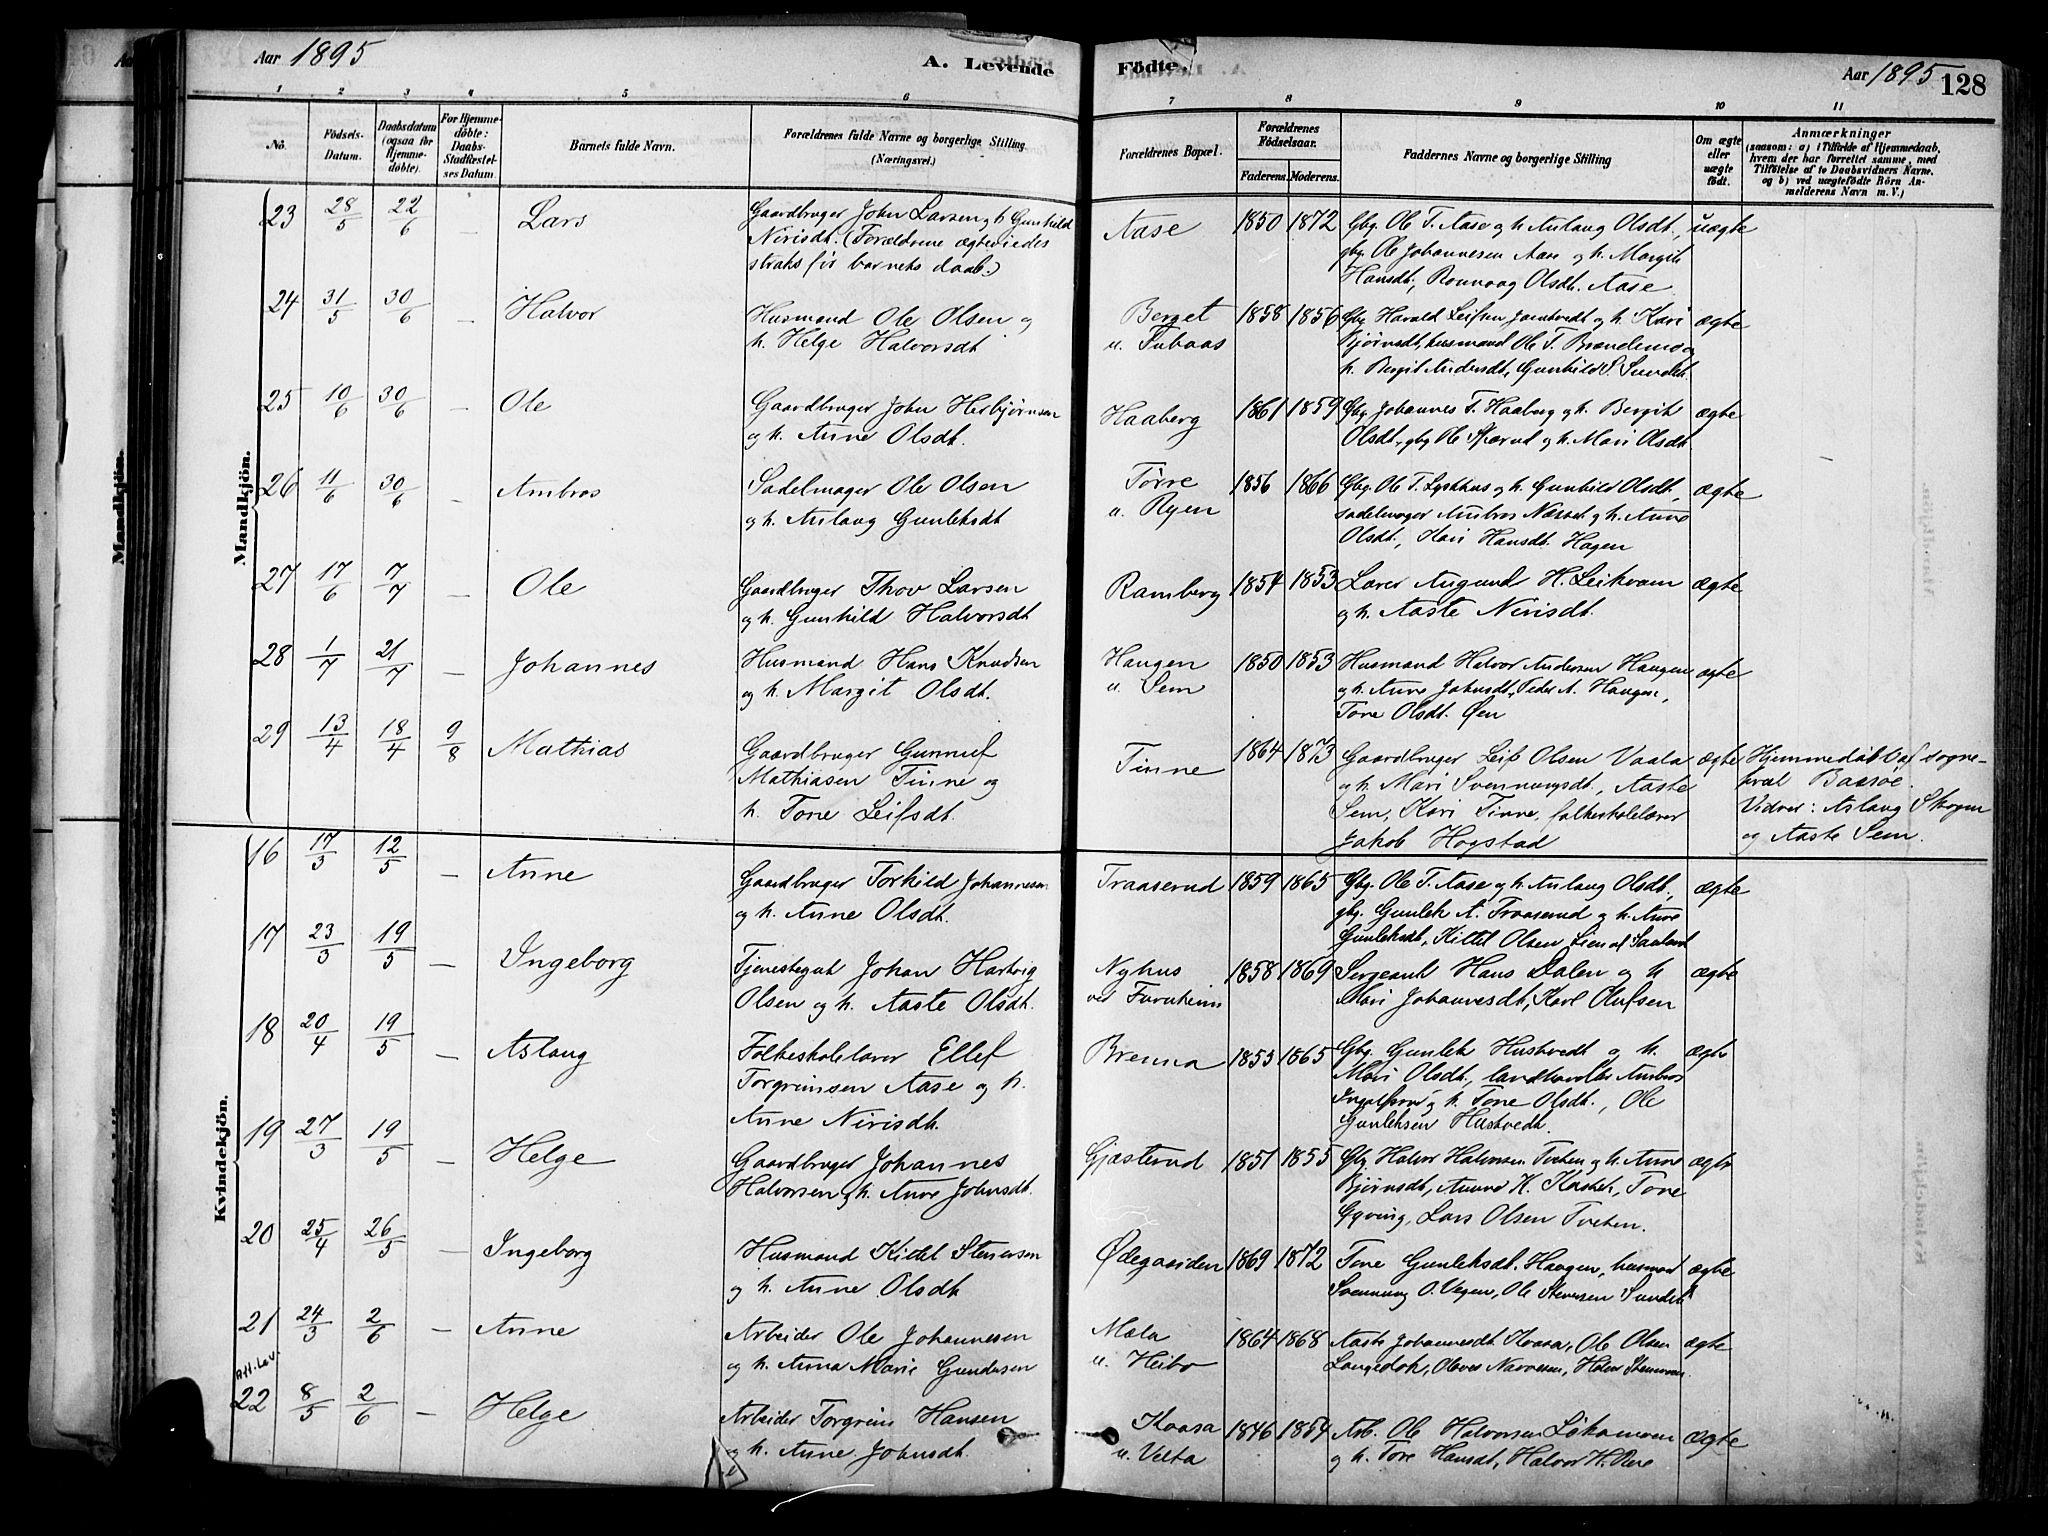 Aar 1895
A. Levende
Födte.
Aar 1895
128
1 2 3 4 5 6 7 8 9 10 11
No.
Födsels-
Datum.
Daabsdatum
(ogsaa for
Hjemme-
döbte).
For Hjemme-
döbte:
Daabs-
Stadfæstel-
ses Datum.
Barnets fulde Navn.
Forældrenes fulde Navne og borgerlige Stilling
(Næringsvei.)
Forældrenes Bopæl.
Forældrenes
Födselsaar.
Faderens. Moderens.
Faddernes Navne og borgerlige Stilling
Om ægte
eller
uægte
födt.
Anmærkninger
(saasom: a) i Tilfælde af Hjemmedaab,
hvem der har forrettet samme, med
Tilföielse af to Daabsvidners Navne,
og b) ved uægtefödte Börn An-
melderens Navn m. V.)
Mandkjön.
Mandkjön.
23 28/5 22/6 – Lars
Gaardbruger John Larsen og h. Gunhild
Nirisdt. (Forældrene ægteviedes
straks før barnets daab.)
Aase 1850 1872
Gbg. Ole T. Aase og h. Aslaug Olsdt.,
gbg. Ole Johannesen Aase og h. Margit
Hansdt., Rønnaug Olsdt. Aase
uægte
24 31/5 30/6 – Halvor
Husmand Ole Olsen og
h. Helge Halvorsdt
Berget
u. Tubaas
1858 1856
Gbg. Harald Leifsen og h. Kari
Bjørnsdt, husmand Ole T. Brændemo og
h. Bergit Andersdt, Gunhild S. Sundet.
ægte
25 10/6 30/6 – Ole
Gaardbruger John Herbjørnsen
og h. Anne Olsdt.
Haaberg 1861 1859
Gbg. Johannes T. Haaberg og h. Bergit
Olsdt., gbg Ole og h. Mari Olsdt.
ægte
26 11/6 30/6 – Ambros
Sadelmager Ole Olsen
og h. Aslaug Gunleksdt
Tørre
u. Ryen
1856 1866
Gbg. Ole T. Lyskhus og h. Gunhild Olsdt.,
sadelmager Ambros Næset og h. Anne
Olsdt., Kari Hansdt. Hagen
ægte
27 17/6 7/7 – Ole
Gaardbruger Thov Larsen
og h. Gunhild Halvorsdt
Ramberg 1854 1853
Lærer Augund H. Leikvam
og h. Aaste Nirisdt.
ægte
28 1/7 21/7 – Johannes
Husmand Hans Knudsen
og h. Margit Olsdt.
Haugen
u. Sem
1850 1853
Husmand Halvor Andersen Haugen
og h. Anne Johnsdt., Peder A. Haugen,
Tone Olsdt. Øen
ægte
29 13/4 18/4 9/8 Mathias
Gaardbruger Gunnulf
Mathiasen Tinne og
h. Tone Leifsdt.
Tinne 1864 1873
Gaardbruger Leif Olsen Vaala
og h. Mari Svennungsdt., Aaste
Sem, Kari Tinne, folkeskolelærer
Jakob Hogstad
ægte
Hjemmedøbt af sogne-
præst Baasøe.
Vidner: Aslaug Skogen
og Aaste Sem.
Kvindekjön.
16 17/3 12/5 – Anne
Gaardbruger Torkild Johannesen
og h. Anne Olsdt.
Traaserud 1859 1865
Gbg. Ole T. Aase og h. Aslaug Olsdt.,
gbg. Gunlek A. Traaserud og h. Anne
Gunleksdt., Kittil Olsen Lien af Sauland
ægte
17 23/3 19/5 – Ingeborg
Tjenestegut Johan Hartvig
Olsen og h. Aaste Olsdt.
Nyhus
ved Furuheim
1858 1869
Sergeant Hans Dalen og h
Mari Johannesdt., Karl Olufsen
ægte
18 20/4 19/5 – Aslaug
Folkeskolelærer Ellef
Torgrimsen Aase og h.
Anne Nirisdt.
Brenna 1855 1865
Gbg. Gunlek Hustvedt og h.
Mari Olsdt., landhandler Ambros
og h. Tone Olsdt., Ole
Gunleksen Hustvedt.
ægte
19 27/3 19/5 – Helge
Gaardbruger Johannes
Halvorsen og h. Anne Johnsdt.
Gjæsterud 1851 1855
Gbg. Halvor Halvorsen Tveten og h. Anne
Bjørnsdt., H. Kaasa, Tone
Gyving, Lars Olsen Tveten.
ægte
20 25/4 26/5 – Ingeborg
Husmand Kittil Stenersen
og h. Anne Olsdt
Ødegaarden 1869 1872
Tone Gunleksdt. Haugen, husmand
Svennung O. Vegen, Ole Stenersen Sundet
ægte
21 24/3 2/6 – Anne
Arbeider Ole Johannesen
og h. Anna Marie Gundersen
Mæla
u. Heibø
1864 1868
Aaste Johannesdt. Kaasa, Ole Olsen
Langedok, Halvor Stenersen
ægte
Att. Lev.
22 8/5 2/6 – Helge
Arbeider Torgrim Hansen
og h. Anne Johnsdt.
Kaasa
u. Velta
1846 1854
Arb. Ole Halvorsen
og h. Tore Hansdt, Halvor H.
ægte